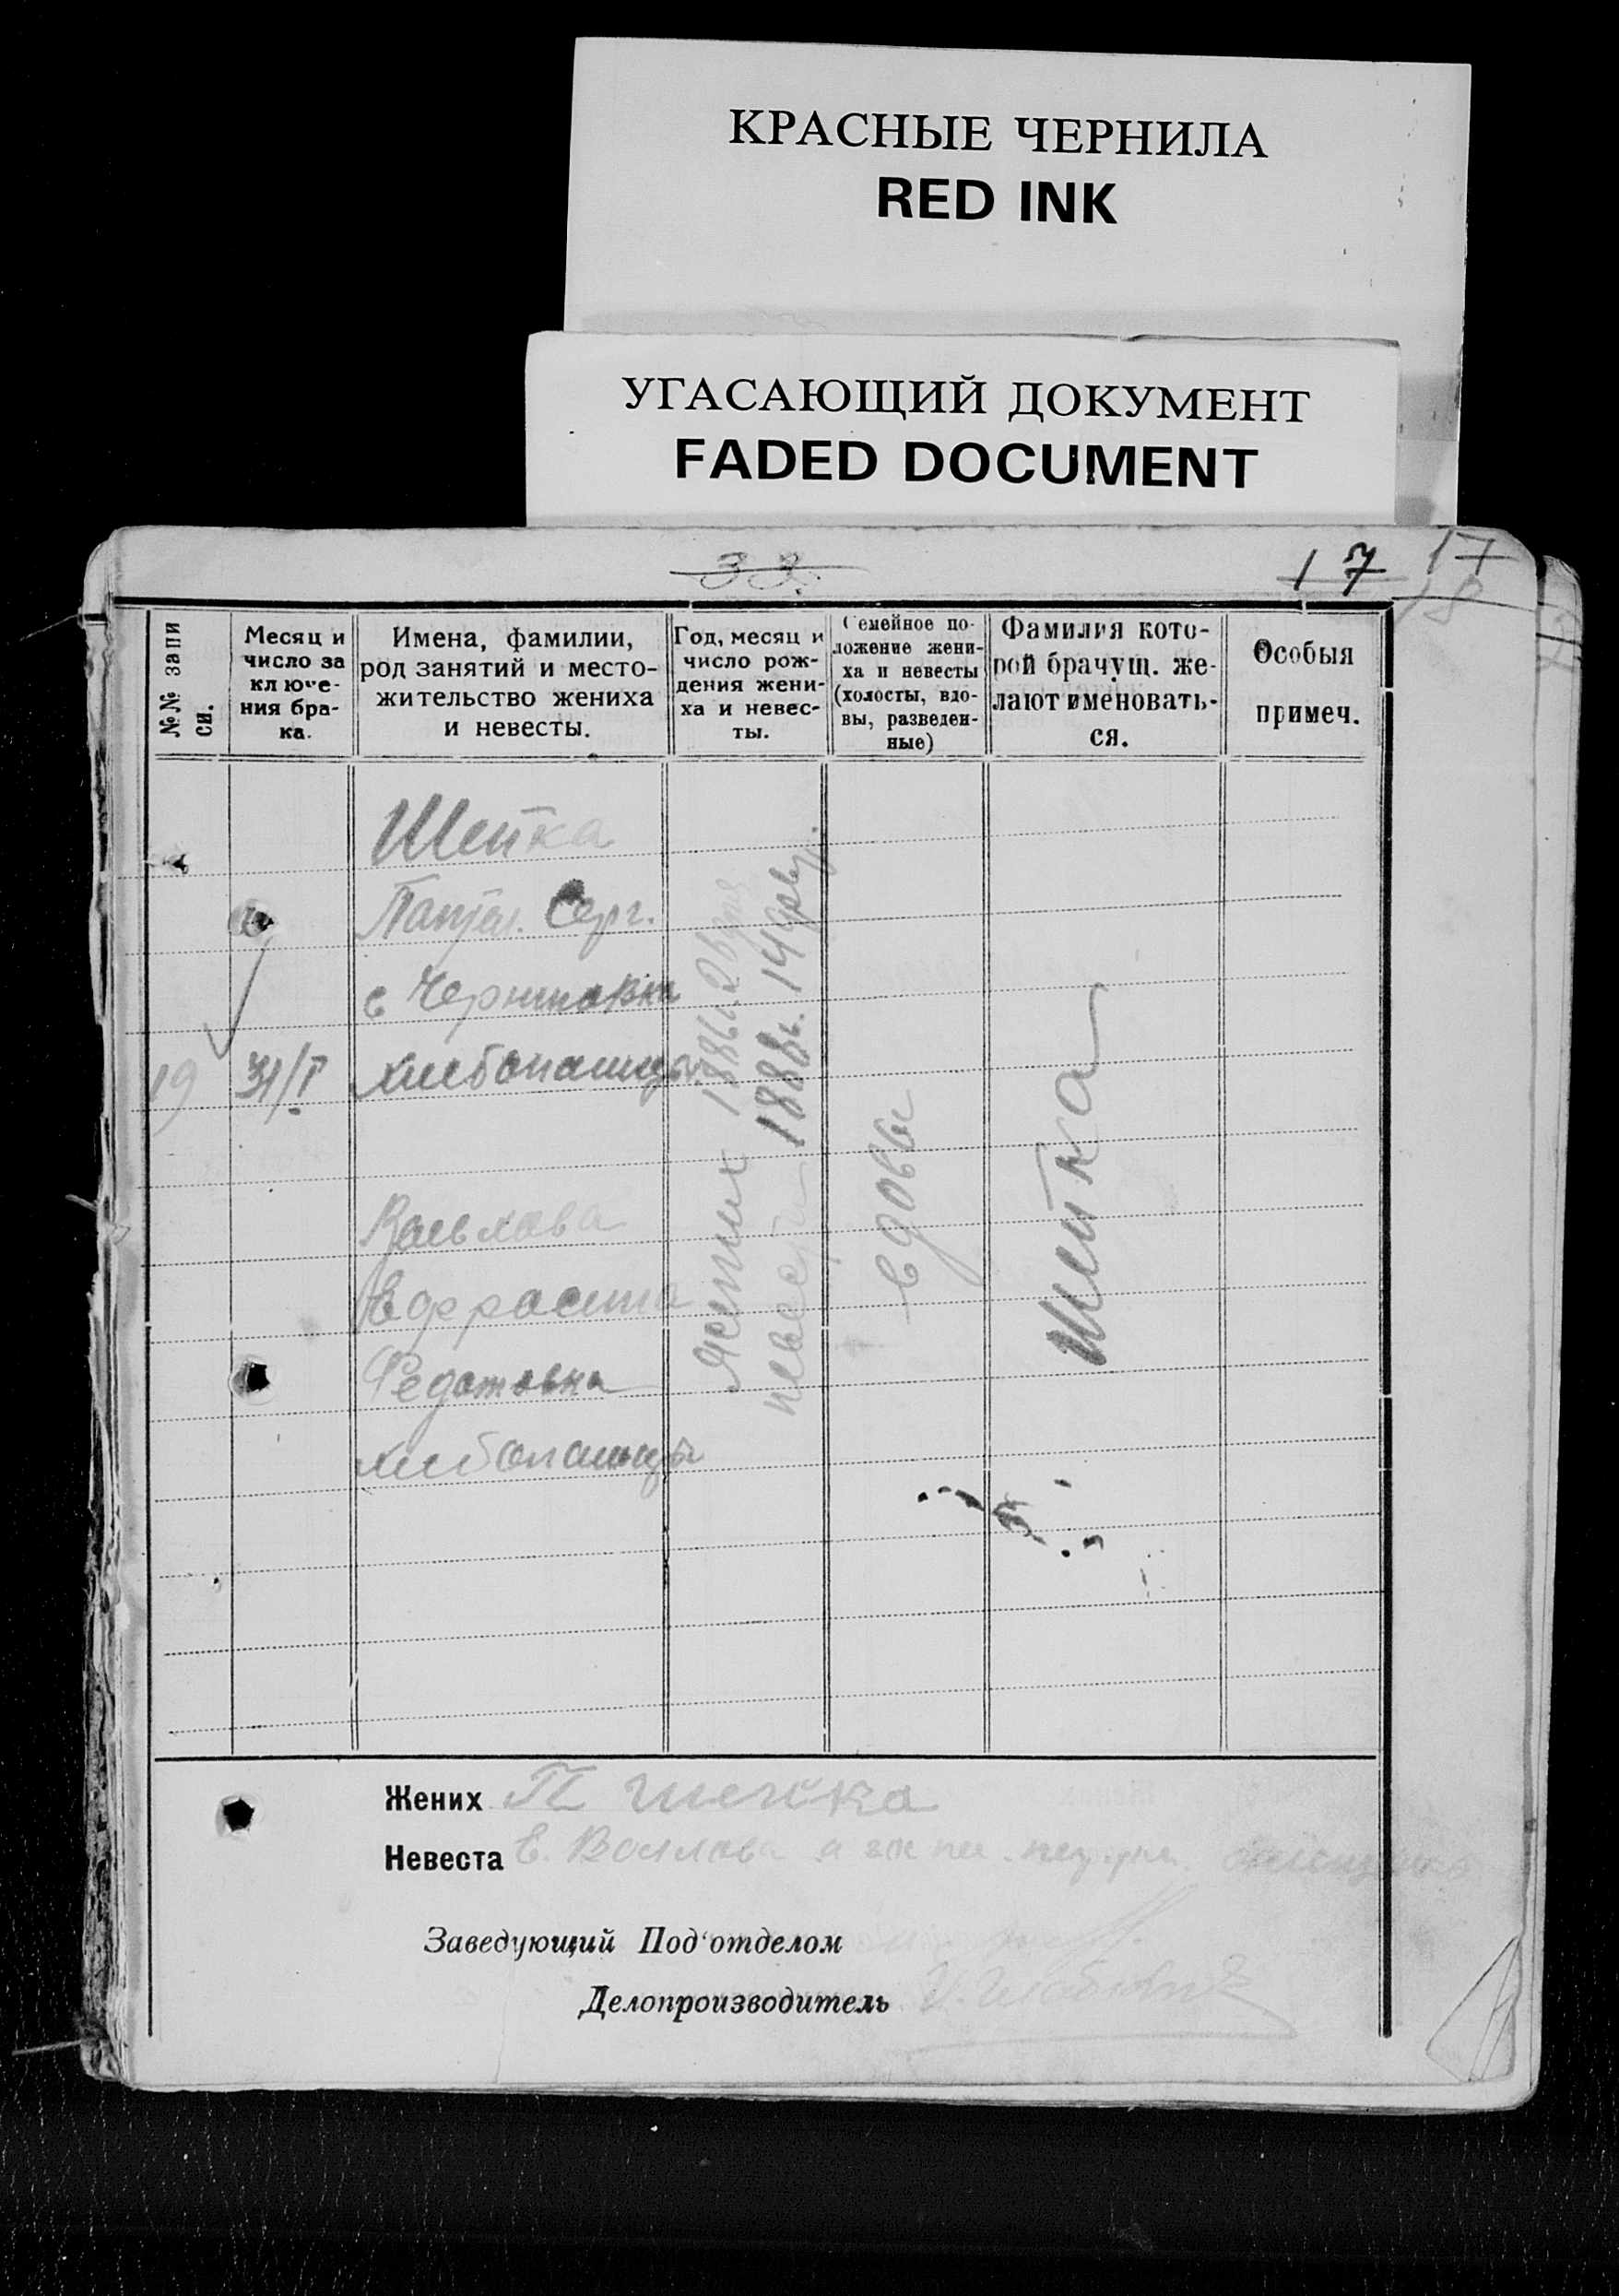 КРАСНЫЕ ЧЕРНИЛА
RED INK
УГАСАЮЩИЙ ДОКУМЕНТ
FADED DOCUMENT
33.
17 17
18
№№ запи
си.
Месяц и
число за
ключе-
ния бра-
ка.
Имена, фамилии,
род занятий и место-
жительство жениха
и невесты.
Год, месяц и
число рож-
дения жени-
ха и невес-
ты.
Семейное по-
ложение жени-
ха и невесты
(холосты, вдо-
вы, разведен-
ные)
Фамилия кото-
рой брачущ. же-
лают именовать-
ся.
Особыя
примеч.
19
31/I
Шейка
Пантел. Серг.
с
хлебопашцы
Ефросиния
Федотовна
хлебопашцы
Жених 1886г.
невеста 1888г. 14
вдовы
Шейка
Жених П Шейка
Невеста Е.
Заведующий Под'отделом
Делопроизводитель